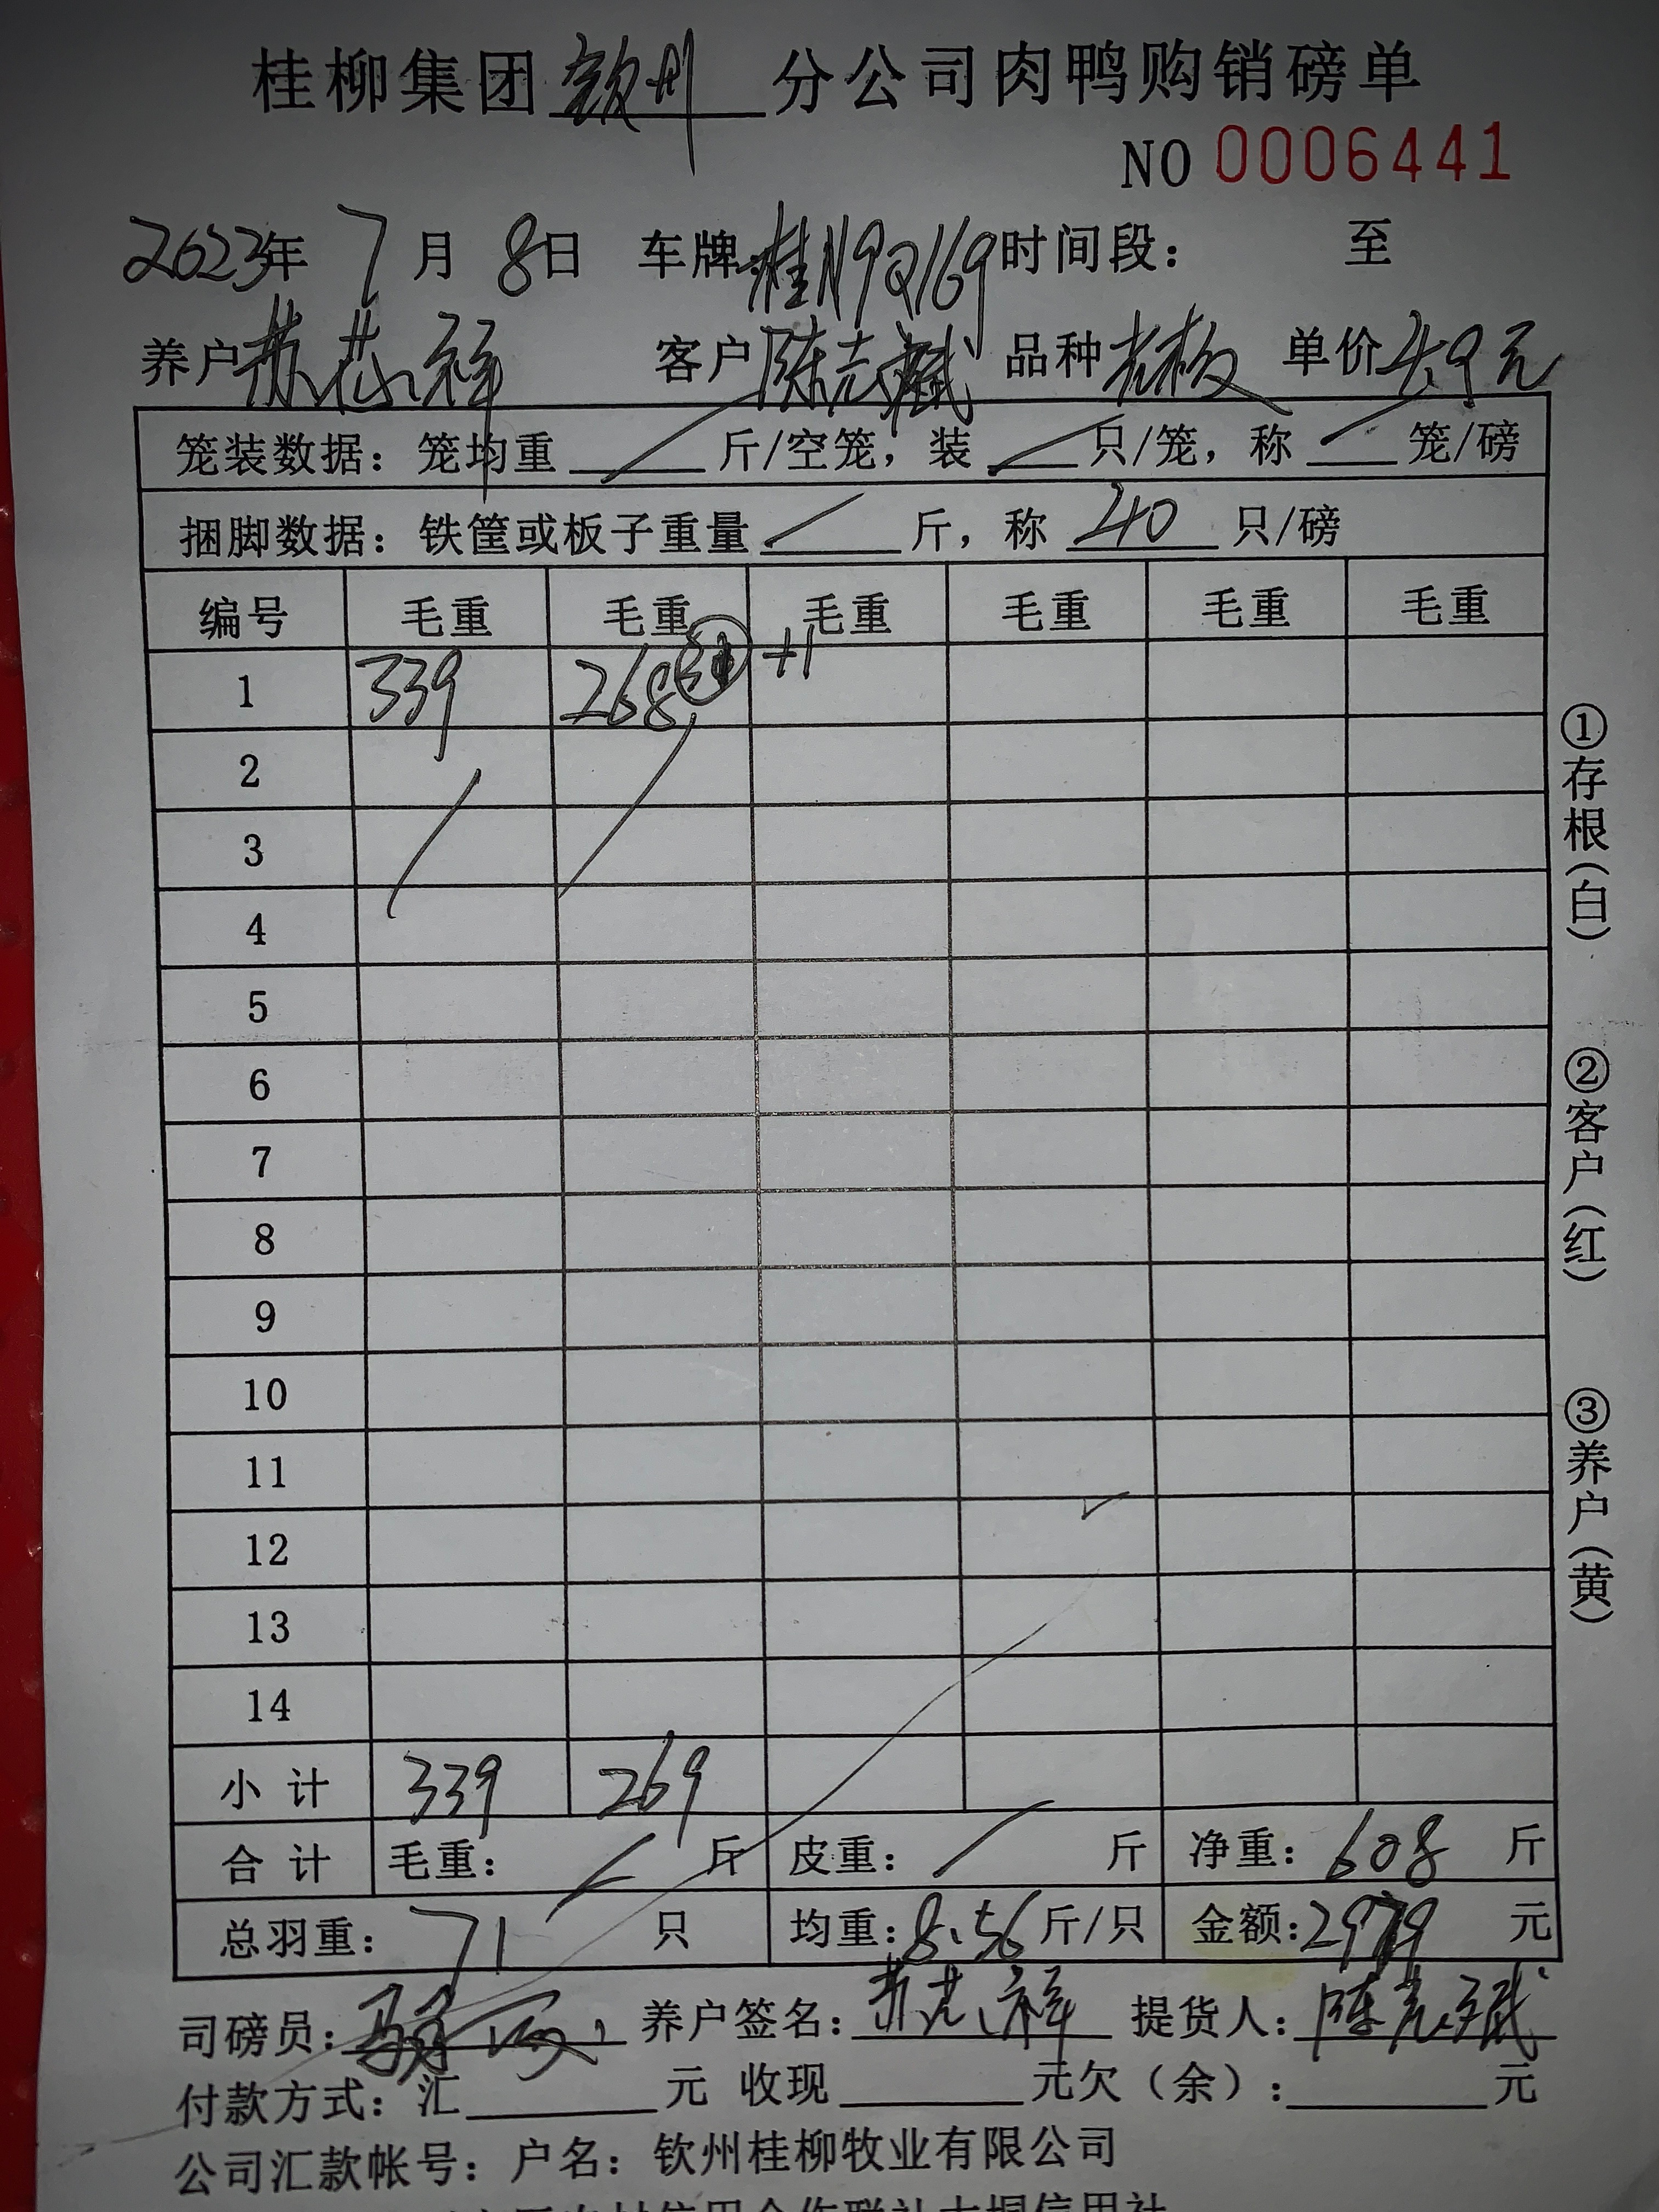 桂柳集团钦州分公司肉鸭购销磅单
NO 0006441
2023年 7月 8日 车牌:桂N9Q169 时间段: 至
养户 苏芯祥 客户 陈志斌 品种 老板 单价 4.9元
笼装数据:笼均重 / 斤/空笼,装 / 只/笼,称 / 笼/磅
捆脚数据:铁筐或板子重量 / 斤,称 40 只/磅
编号 毛重 毛重 毛重 毛重 毛重 毛重
1 339 268 31 +1
2
3
4
5
6
7
8
9
10
11
12
13
14
小计 339 269
合计 毛重: / 斤 皮重: / 斤 净重: 608 斤
总羽重: 71 只 均重: 8.56 斤/只 金额: 2979 元
司磅员: 养户签名: 苏芯祥 提货人: 陈志斌
付款方式:汇 元 收现 元欠(余): 元
公司汇款帐号:户名:钦州桂柳牧业有限公司
①存根(白)
②客户(红)
③养户(黄)